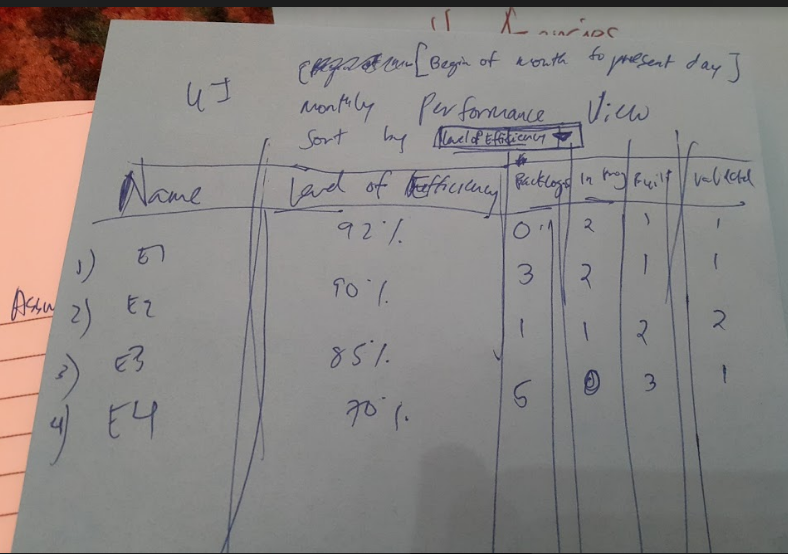 [Begin of month to present day]
UI
monthly Performance View
Sort by Level of Efficiency
Name Level of Efficiency Backlogs In Prog Built Validated
1) E1 92% 0 2 1 1
2) E2 90% 3 2 1 1
3) E3 85% 1 1 2 2
4) E4 70% 5 0 3 1